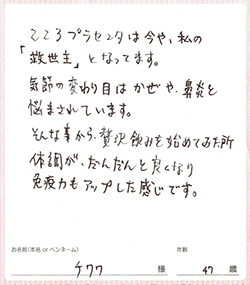 こころプラセンタは今や、私の
「救世主」となってます。
気節の変わり目はかぜや、鼻炎と
悩まされています。
そんな事から、贅沢飲みを始めてみた所
体調が、だんだんと良くなり
免疫力もアップした感じです。
お名前(本名 or ペンネーム)
年齢
チワワ 様 47 歳